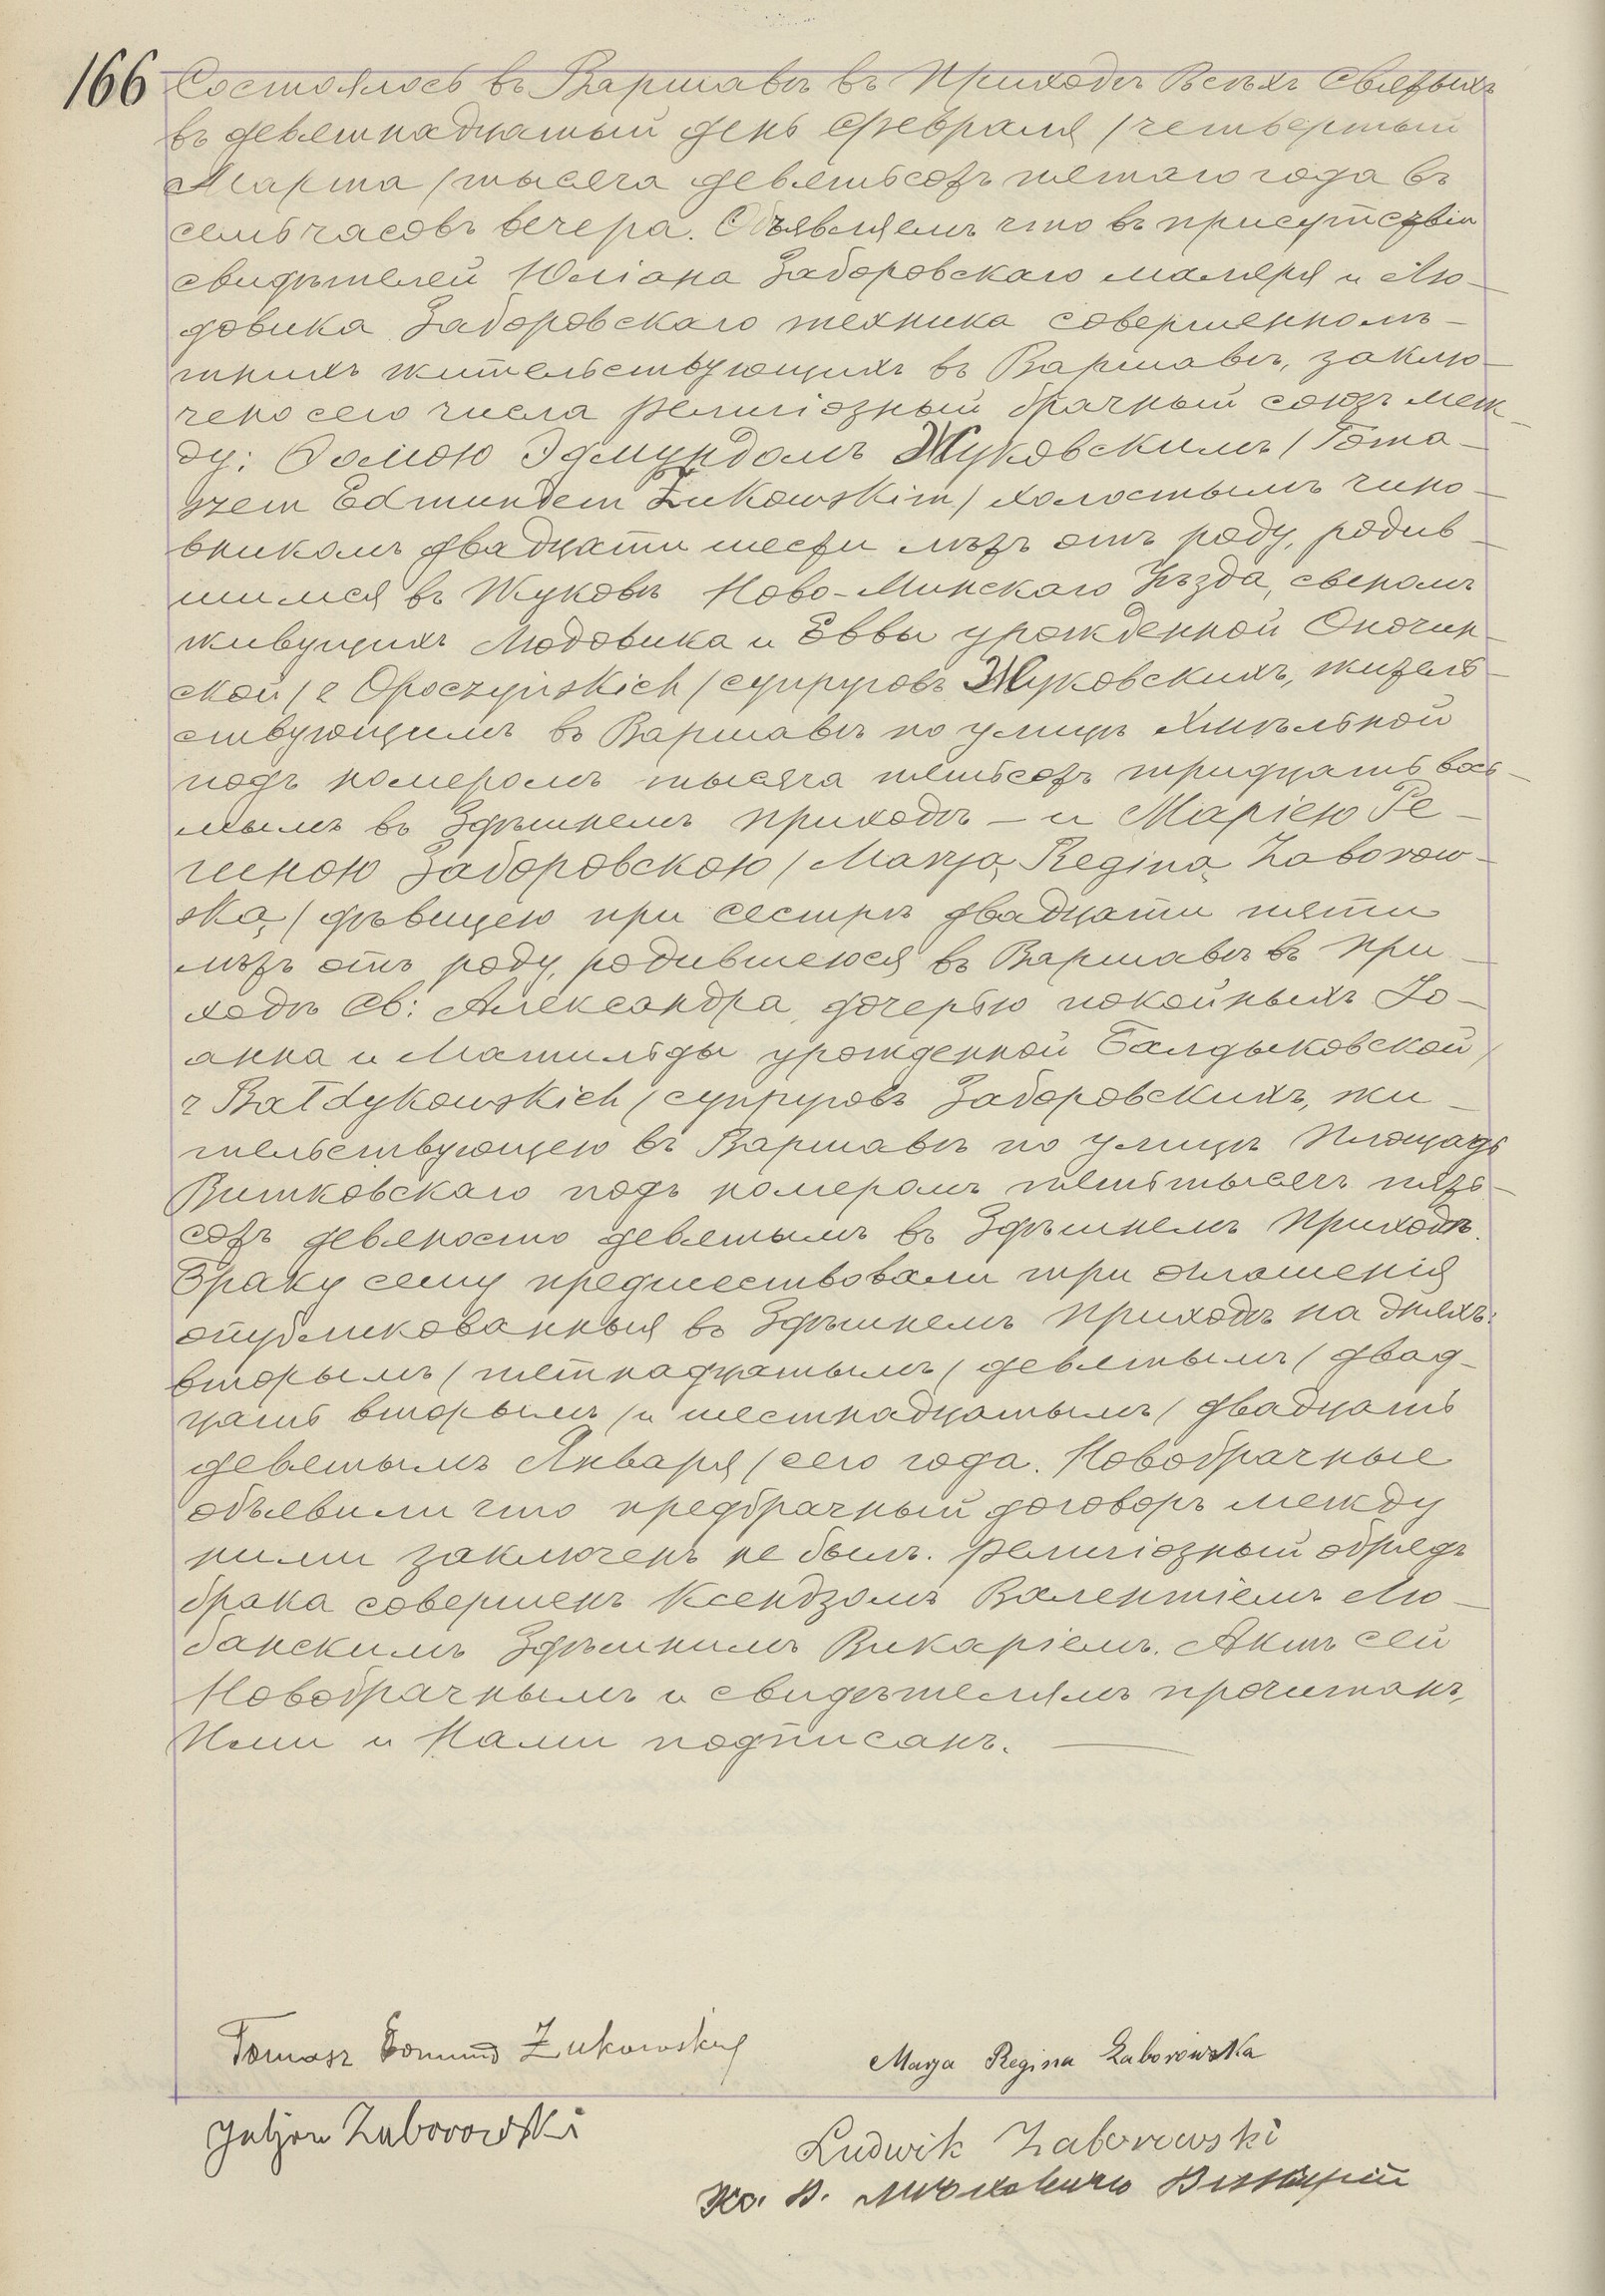 166 Состоялось въ Варшавѣ въ Приходѣ Всѣхъ Святыхъ
въ девятнадцатый день Февраля /четвертый
Марта/ тысяча девятьсотъ пятаго года въ
семь часовъ вечера. Объявляемъ что въ присутствіи
свидѣтелей Юліана Заборовскаго маляря и Лю-
довика Заборовскаго техника совершеннолѣ-
тнихъ жительствующихъ въ Варшавѣ, заклю-
чено сего числа религіозный брачный союзъ меж-
ду: Ѳомою Эдмундомъ Жуковскимъ /Toma-
szem Edmundem Żukowskim/ холостымъ чино-
вникомъ двадцати шести лѣтъ отъ роду, родив-
шимся въ Жуковѣ Ново-Минскаго Уѣзда, сыномъ
живущихъ Людовика и Еввы урожденной Опочин-
ской /z Opoczyńskich/ супруговъ Жуковскихъ, житель-
ствующимъ въ Варшавѣ по улицѣ Хмѣльной
подъ номеромъ тысяча пятьсотъ тридцать вось-
мымъ въ Здѣшнемъ приходѣ – и Маріею Ре-
гиною Заборовскою /Marją Reginą Zaborow-
ską/ дѣвицею при сестрѣ двадцати пяти
лѣтъ отъ роду, родившеюся въ Варшавѣ въ При-
ходѣ Св: Александра, дочерью покойныхъ Іо-
анна и Матильды урожденной Балдыковской /
z Bałdykowskich/ супруговъ Заборовскихъ, жи-
тельствующею въ Варшавѣ по улицѣ Площадь
Витковскаго подъ номеромъ пятьтысячъ пять-
сотъ девяносто девятымъ въ Здѣшнемъ Приходѣ.
Браку сему предшествовали три оглашенія
опубликованныя въ Здѣшнемъ Приходѣ на дняхъ:
вторымъ /пятнадцатымъ/ девятымъ /двад-
цать вторымъ/ и шестнадцатымъ /двадцать
девятымъ Января/ сего года. Новобрачные
объявили что предбрачный договоръ между
ними заключенъ не былъ. Религіозный обрядъ
брака совершенъ Ксендзомъ Валентіемъ Лю-
банскимъ Здѣшнимъ Викаріемъ. Актъ сей
Новобрачнымъ и свидѣтелямъ прочитанъ,
Ими и Нами подписанъ.
Tomasz Edmund Żukowski Marja Regina Zaborowska
Juljan Zaborowski
Ludwik Zaborowski
Кс. В. Викарій